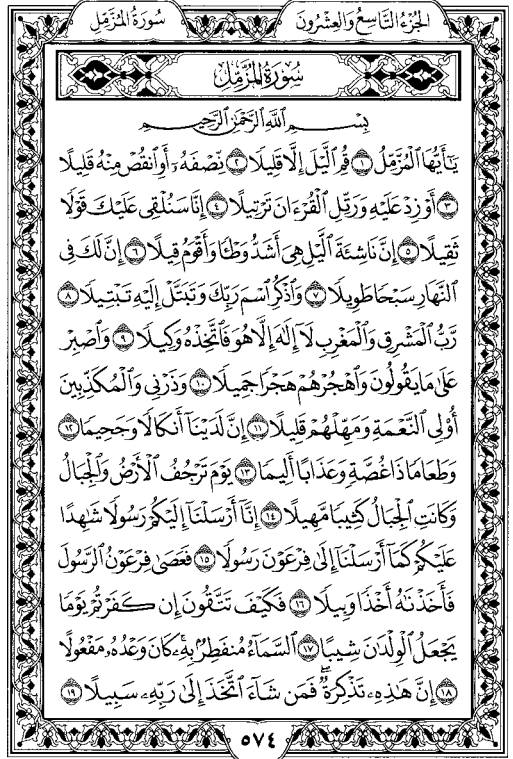 الجزء التاسع والعشرون
سورة المزمل
سُورَةُ الْمُزَّمِّلِ
بِسْمِ ٱللَّهِ ٱلرَّحْمَٰنِ ٱلرَّحِيمِ
يَٰٓأَيُّهَا ٱلْمُزَّمِّلُ ١ قُمِ ٱلَّيْلَ إِلَّا قَلِيلًا ٢ نِّصْفَهُۥٓ أَوِ ٱنقُصْ مِنْهُ قَلِيلًا
٣ أَوْ زِدْ عَلَيْهِ وَرَتِّلِ ٱلْقُرْءَانَ تَرْتِيلًا ٤ إِنَّا سَنُلْقِى عَلَيْكَ قَوْلًا
ثَقِيلًا ٥ إِنَّ نَاشِئَةَ ٱلَّيْلِ هِىَ أَشَدُّ وَطْـًٔا وَأَقْوَمُ قِيلًا ٦ إِنَّ لَكَ فِى
ٱلنَّهَارِ سَبْحًا طَوِيلًا ٧ وَٱذْكُرِ ٱسْمَ رَبِّكَ وَتَبَتَّلْ إِلَيْهِ تَبْتِيلًا ٨
رَّبُّ ٱلْمَشْرِقِ وَٱلْمَغْرِبِ لَآ إِلَٰهَ إِلَّا هُوَ فَٱتَّخِذْهُ وَكِيلًا ٩ وَٱصْبِرْ
عَلَىٰ مَا يَقُولُونَ وَٱهْجُرْهُمْ هَجْرًا جَمِيلًا ١٠ وَذَرْنِى وَٱلْمُكَذِّبِينَ
أُو۟لِى ٱلنَّعْمَةِ وَمَهِّلْهُمْ قَلِيلًا ١١ إِنَّ لَدَيْنَآ أَنكَالًا وَجَحِيمًا ١٢
وَطَعَامًا ذَا غُصَّةٍ وَعَذَابًا أَلِيمًا ١٣ يَوْمَ تَرْجُفُ ٱلْأَرْضُ وَٱلْجِبَالُ
وَكَانَتِ ٱلْجِبَالُ كَثِيبًا مَّهِيلًا ١٤ إِنَّآ أَرْسَلْنَآ إِلَيْكُمْ رَسُولًا شَٰهِدًا
عَلَيْكُمْ كَمَآ أَرْسَلْنَآ إِلَىٰ فِرْعَوْنَ رَسُولًا ١٥ فَعَصَىٰ فِرْعَوْنُ ٱلرَّسُولَ
فَأَخَذْنَٰهُ أَخْذًا وَبِيلًا ١٦ فَكَيْفَ تَتَّقُونَ إِن كَفَرْتُمْ يَوْمًا
يَجْعَلُ ٱلْوِلْدَٰنَ شِيبًا ١٧ ٱلسَّمَآءُ مُنفَطِرٌۢ بِهِۦ ۚ كَانَ وَعْدُهُۥ مَفْعُولًا
١٨ إِنَّ هَٰذِهِۦ تَذْكِرَةٌ ۖ فَمَن شَآءَ ٱتَّخَذَ إِلَىٰ رَبِّهِۦ سَبِيلًا ١٩
٥٧٤